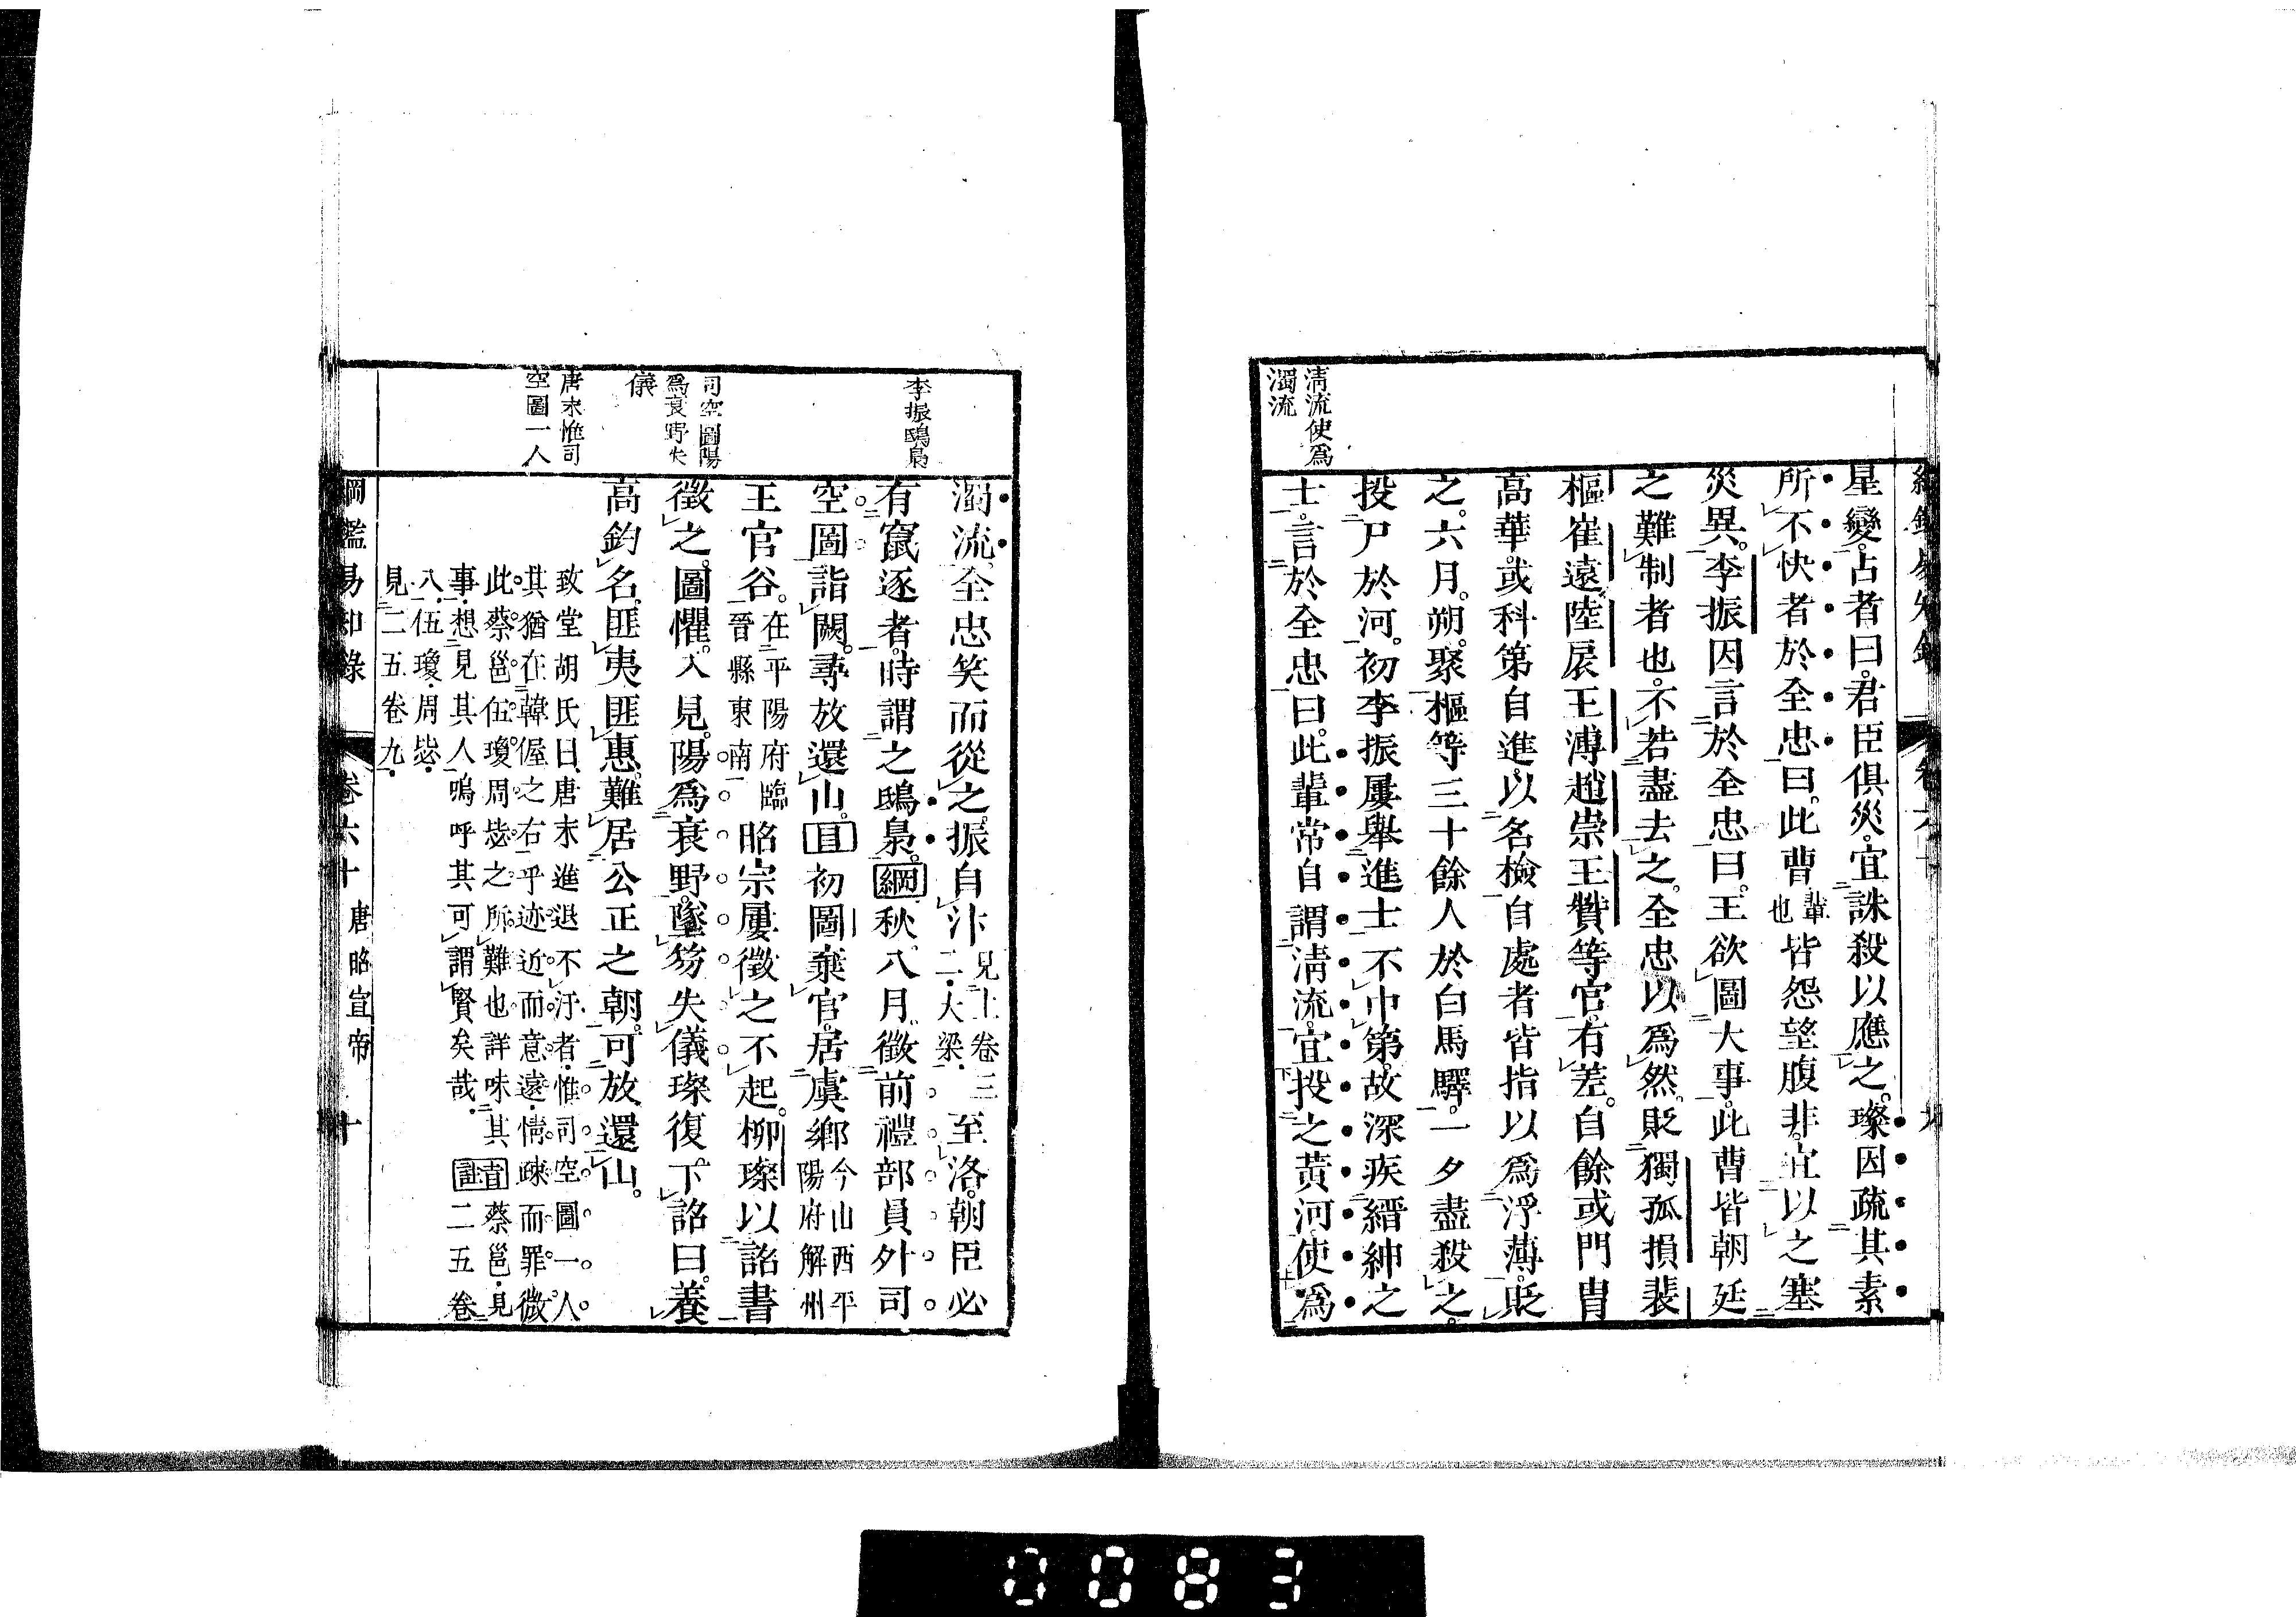 清流使爲
濁流
星變占者曰君臣俱災宜誅殺以應之璨因疏其素
所不快者於全忠曰此曹輩也皆怨望腹非宜以之塞
災異李振因言於全忠曰王欲圖大事此曹皆朝廷
之難制者也不若盡去之全忠以爲然貶獨孤損裴
樞崔遠陸扆王溥趙崇王贊等官有差自餘或門胄
高華或科第自進以名檢自處者皆指以爲浮薄貶
之六月朔聚樞等三十餘人於白馬驛一夕盡殺之
投尸於河初李振屢舉進士不中第故深疾縉紳之
士言於全忠曰此輩常自謂淸流宜投之黃河使爲
李振鴟梟
司空圖陽
爲衰野失
儀
唐末惟司
空圖一人
濁流全忠笑而從之振自汴見上卷三二大梁至洛朝臣必
有竄逐者時謂之鴟梟綱秋八月徵前禮部員外司
空圖詣闕尋放還山目初圖棄官居虞鄉今山西平陽府解州
王官谷在平陽府臨晉縣東南昭宗屢徵之不起柳璨以詔書
徵之圖懼入見陽爲衰野墜笏失儀璨復下詔曰養
高釣名匪夷匪惠難居公正之朝可放還山
致堂胡氏曰唐末進退不汙者惟司空圖一人
其猶在韓偓之右乎迹近而意遠情疎而罪微
此蔡邕伍瓊周毖之所難也詳味其
事想見其人嗚呼其可謂賢矣哉
旨註蔡邕見二五卷
八伍瓊周毖
見二五卷九
綱鑑易知錄 卷六十 唐昭宣帝 十